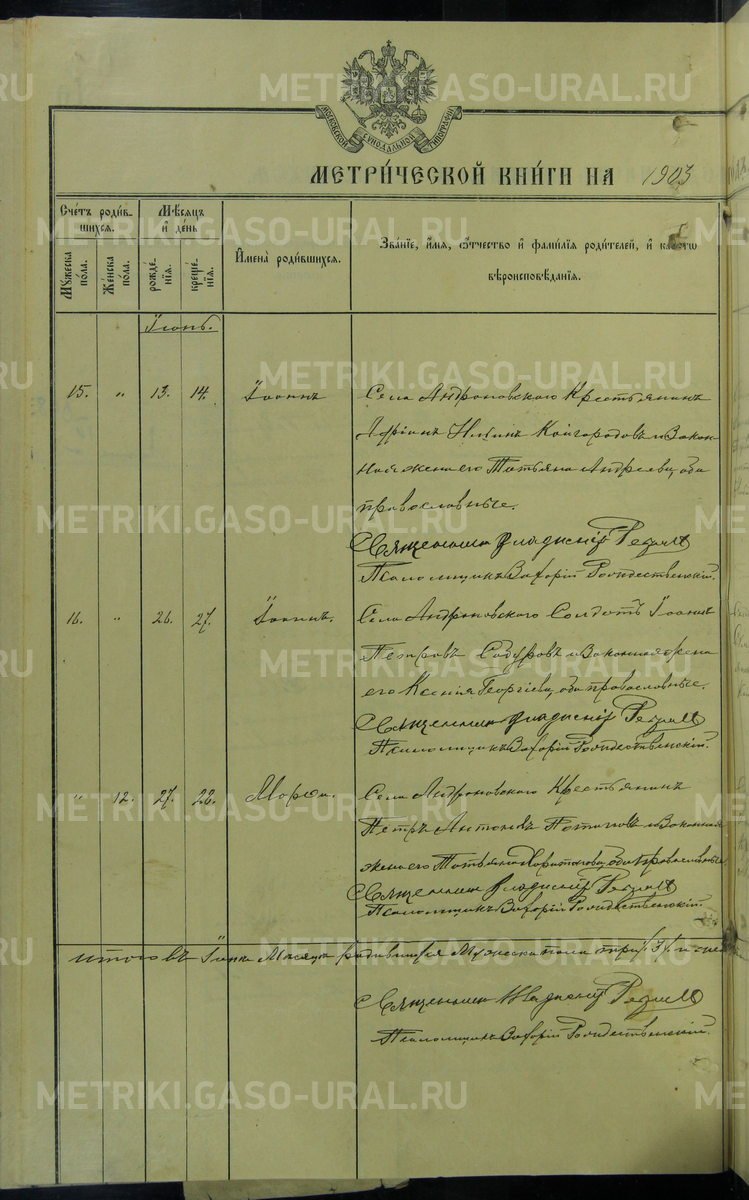 МОСКОВСКОЙ СѴНОДАЛЬНОЙ ТИПОГРАФІИ
МЕТРИ́ЧЕСКОЙ КНИ́ГИ НА 1903
Сче́тъ роди́в-
шихся.
Мѣ́сяцъ
и҆ де́нь
Мꙋ́жеска по́ла.
Же́нска по́ла.
рожде́-
нїѧ.
креще́-
нїѧ.
И҆мена̀ роди́вшихся.
Зва́нїе, и҆́мѧ, ѻ҆́тчество и҆ фами́лїѧ роди́телей, и҆
вѣроисповѣ́данїѧ.
Іюнь.
15. „ 13. 14. Іоаннъ
Села Андроновскаго Крестьянинъ
Кайгородовъ и закон
ная жена его Татьяна Андреева, оба
православные.
Священникъ Владиміръ
Псаломщикъ Захарій Рождественскій.
16. „ 26. 27. Іоаннъ.
Села Андроновскаго Солдатъ Іоаннъ
Петровъ и законная жена
его Ксенія Георгіева, оба православные.
Священникъ Владиміръ
Псаломщикъ Захарій Рождественскій.
„ 12. 27. 28. Марѳа.
Села Андроновскаго Крестьянинъ
Петръ Антоніевъ и законная
жена его Татьяна Харитонова, оба православные
Священникъ Владиміръ
Псаломщикъ Захарій Рождественскій.
Итого въ Іюнѣ Мѣсяцѣ родившихся Мужеска пола три /3/ и
Священникъ Владиміръ
Псаломщикъ Захарій Рождественскій.
METRIKI.GASO-URAL.RU